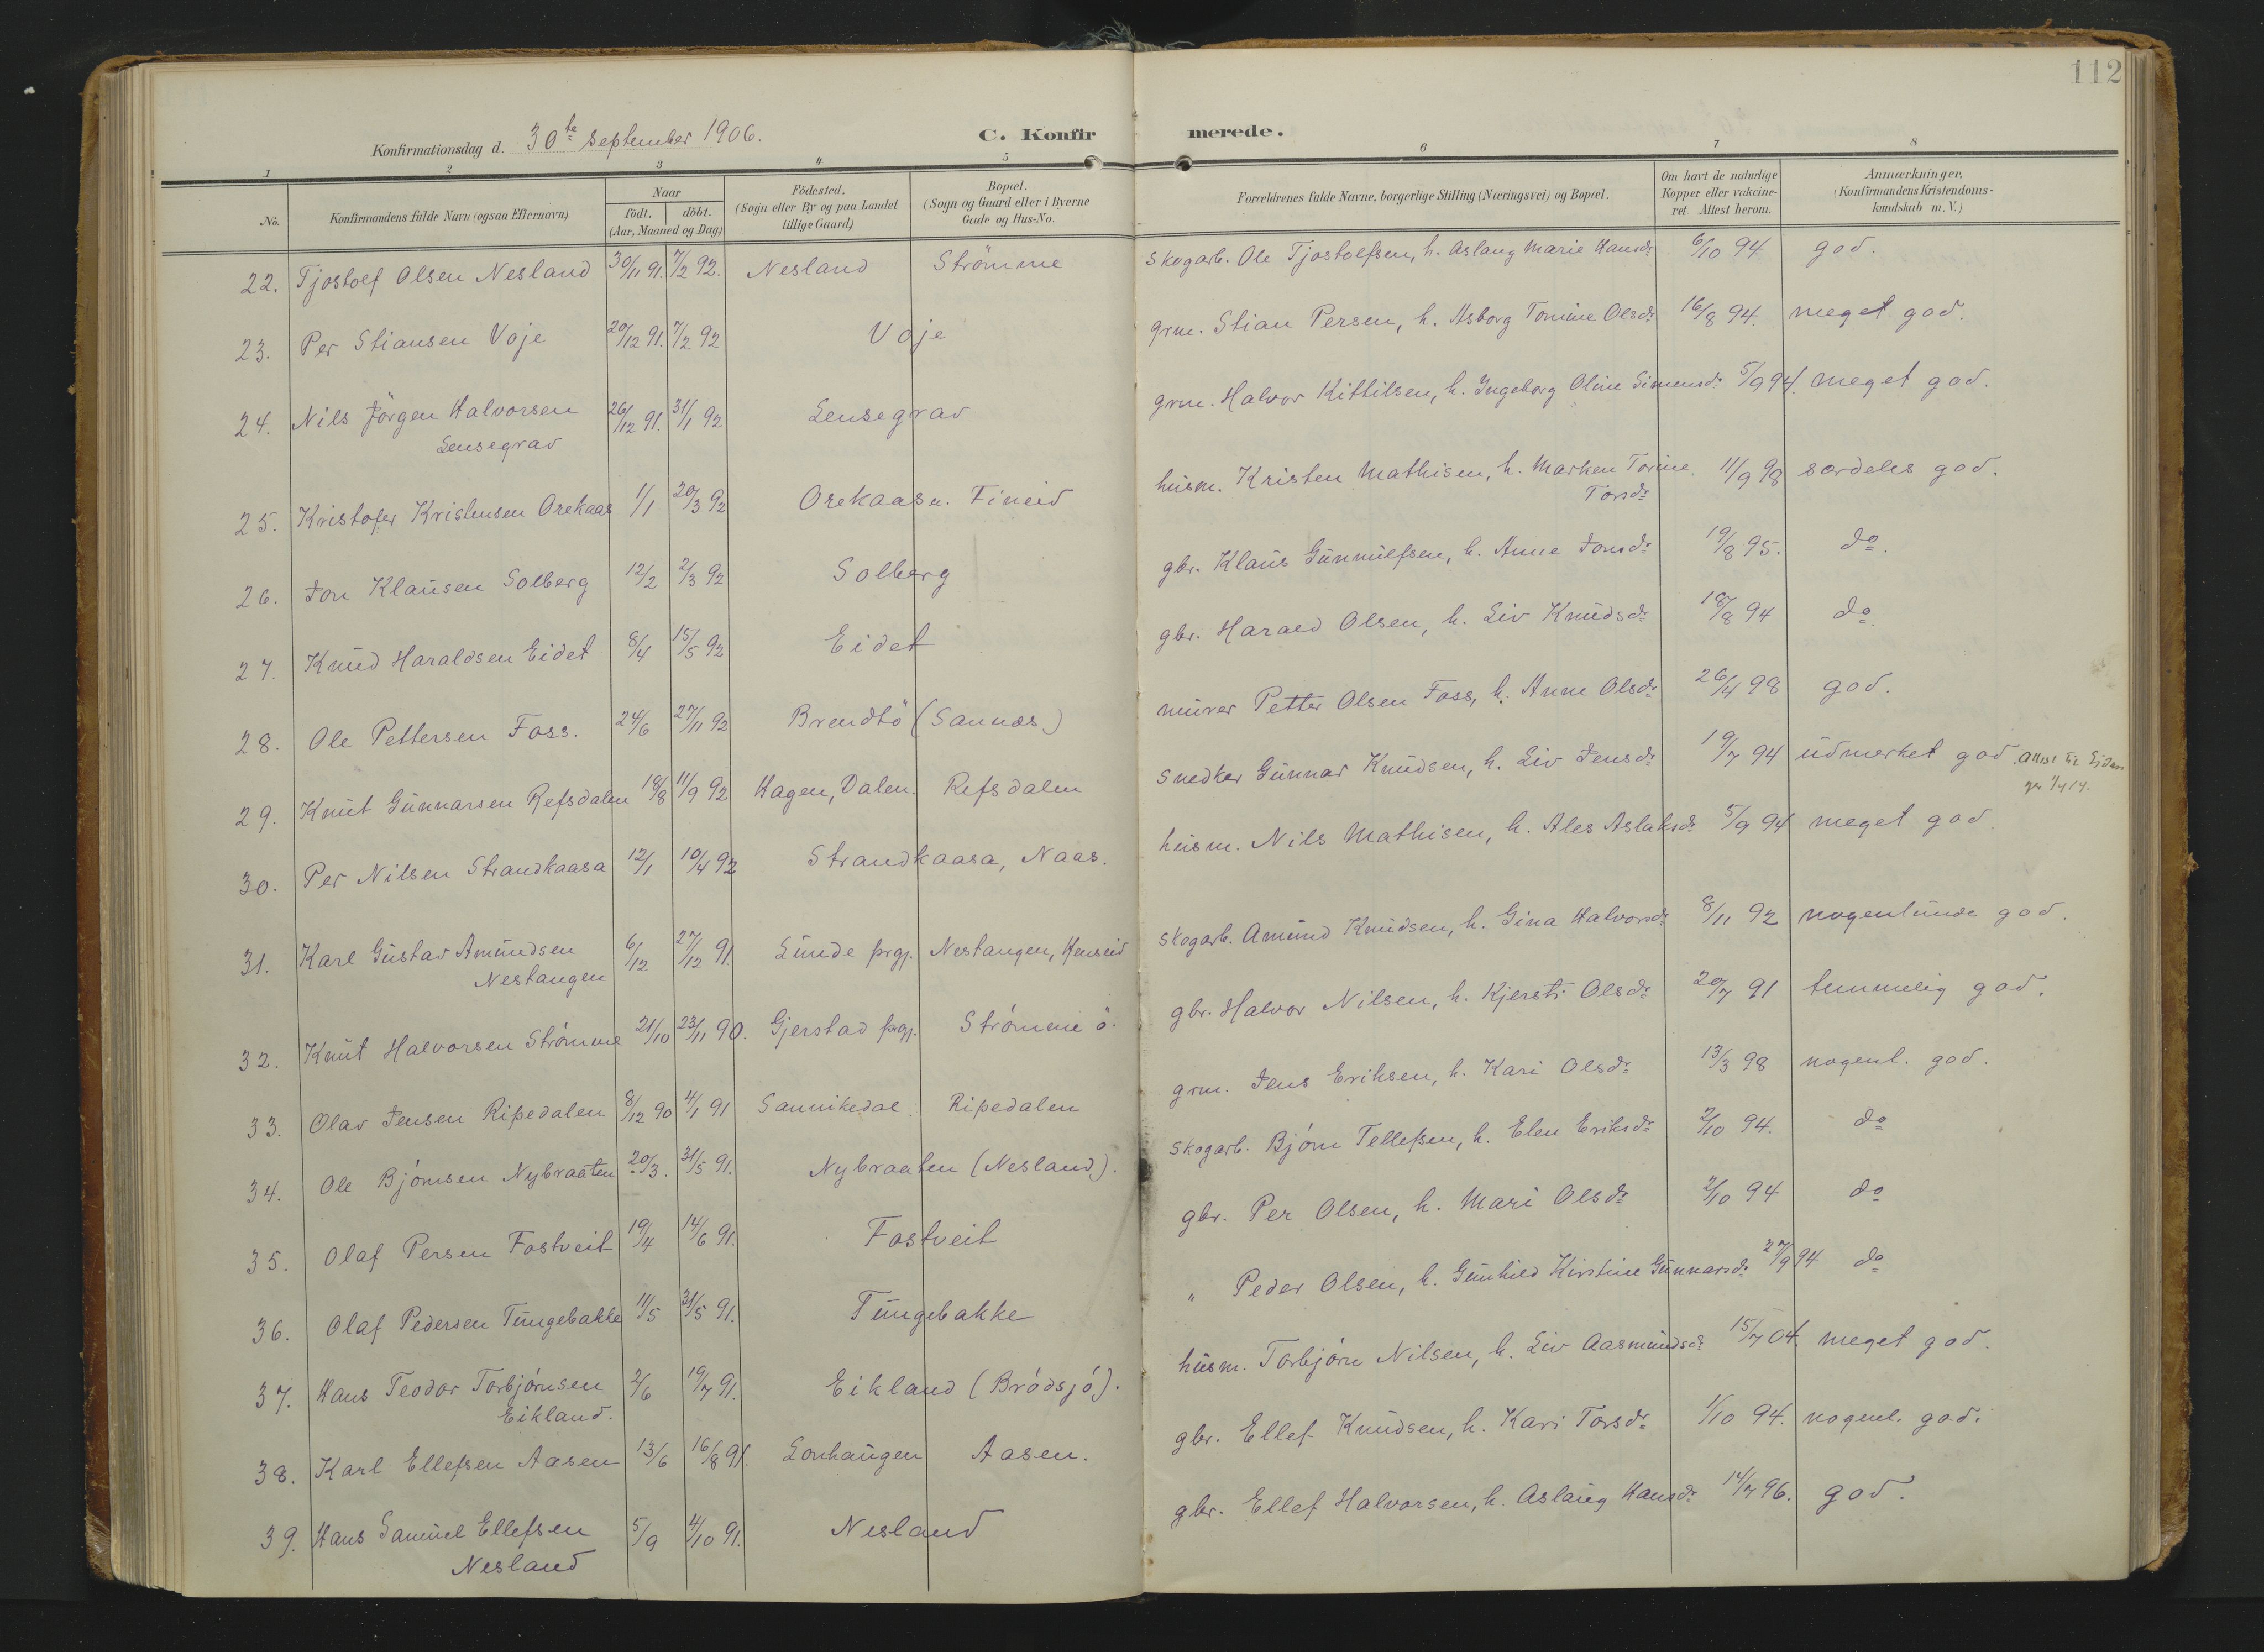 112
Konfirmationsdag d. 30te September 1906. C. Konfirmerede.
1 2 3 4 5 6 7 8
No. Konfirmandens fulde Navn (ogsaa Efternavn) Naar födt. döbt. (Aar, Maaned og Dag) Födested. (Sogn eller By og paa Landet tillige Gaard) Bopæl. (Sogn og Gaard eller i Byerne Gade og Hus-No. Forældrenes fulde Navne, borgerlige Stilling (Næringsvei) og Bopæl. Om havt de naturlige Kopper eller vakcineret Attest herom. Anmærkninger, (Konfirmandens Kristendomskundskab m. V.)
22. Tjostolf Olsen Nesland 30/11 91. 7/2 92. Nesland Strömme Skogarb. Ole Tjostolfsen, h. Aslaug Marie Hansdr 6/10 94 god.
23. Per Stiansen Voje 20/12 91. 7/2 92 Voje grm. Stian Persen, h. Asborg Tomine Olsdr 16/8 94. meget god.
24. Nils Jörgen Halvorsen 26/12 91. 31/1 92 Lensegrav grm. Halvor Kittilsen, h. Ingeborg Oline Simensdr 5/9 94. meget god.
Lensegrav
25. Kristofer Kristensen Orekaas 1/1 20/3 92 Orekaas u. Fineid husm. Kristen Mathisen, h. Marken Torine 11/9 98 særdeles god.
Torsdr
26. Jon Klausen Solberg 12/2 2/3 92 Solberg gbr. Klaus Gunnulfsen, h. Anne Jonsdr 19/8 95. do.
27. Knud Haraldsen Eidet 8/4 15/5 92 Eidet gbr. Harald Olsen, h. Liv Knudsdr 18/8 94 do.
28. Ole Pettersen Foss. 24/6 27/11 92 Brendtö (Sannæs) murer Petter Olsen Foss, h. Anne Olsdr 26/4 98 god.
29. Knut Gunnarsen Refsdalen 18/8 11/9 92 Hagen, Dalen. Refsdalen Snedker Gunnar Knudsen, h. Liv Jensdr 19/7 94 udmerket god. Attest til
30. Per Nilsen Strandkaasa 12/1 10/4 92 Strandkaasa, Naas. husm. Nils Mathisen, h. Ales Aslaksdr 5/9 94 meget god.
31. Karl Gustav Amundsen 6/12 27/12 91. Lunde prgj. Nestangen, Henseid Skogarb. Amund Knudsen, h. Gina Halvorsdr 8/11 92 nogenlunde god.
Nestangen
32. Knut Halvorsen Strömme 21/10 23/11 90. Gjerstad prgj. Strömme ö. gbr. Halvor Nilsen, h. Kjersti Olsdr 20/7 91 temmelig god.
33. Olav Jensen Ripedalen 8/12 90 4/1 91 Sannikedal Ripedalen grm. Jens Eriksen, h. Kari Olsdr 13/3 98 nogenl. god.
34. Ole Björnsen Nybraaten 20/3. 31/5 91. Nybraaten (Nesland). Skogarb. Björn Tellefsen, h. Elen Eriksdr 2/10 94. do
35. Olaf Persen Fostveit 19/4 14/6 91. Fostveit gbr. Per Olsen, h. Mari Olsdr 2/10 94 do
36. Olaf Pedersen Tungebakke 11/5 31/5 91. Tungebakke " Peder Olsen, h. Gunhild Kirstine Gunnarsdr 27/9 94 do
37. Hans Teodor Torbjörnsen 2/6 19/7 91. Eikland (Brödsjö). husm. Torbjörn Nilsen, h. Liv Aasmundsdr 15/7 04. meget god.
Eikland.
38. Karl Ellefsen Aasen 13/6 16/8 91. Lonhaugen Aasen. gbr. Ellef Knudsen, h. Kari Torsdr 1/10 94. nogenl. god.
39. Hans Samuel Ellefsen 5/9 4/10 91. Nesland gbr. Ellef Halvorsen, h. Aslaug Hansdr 14/7 96. god.
Nesland